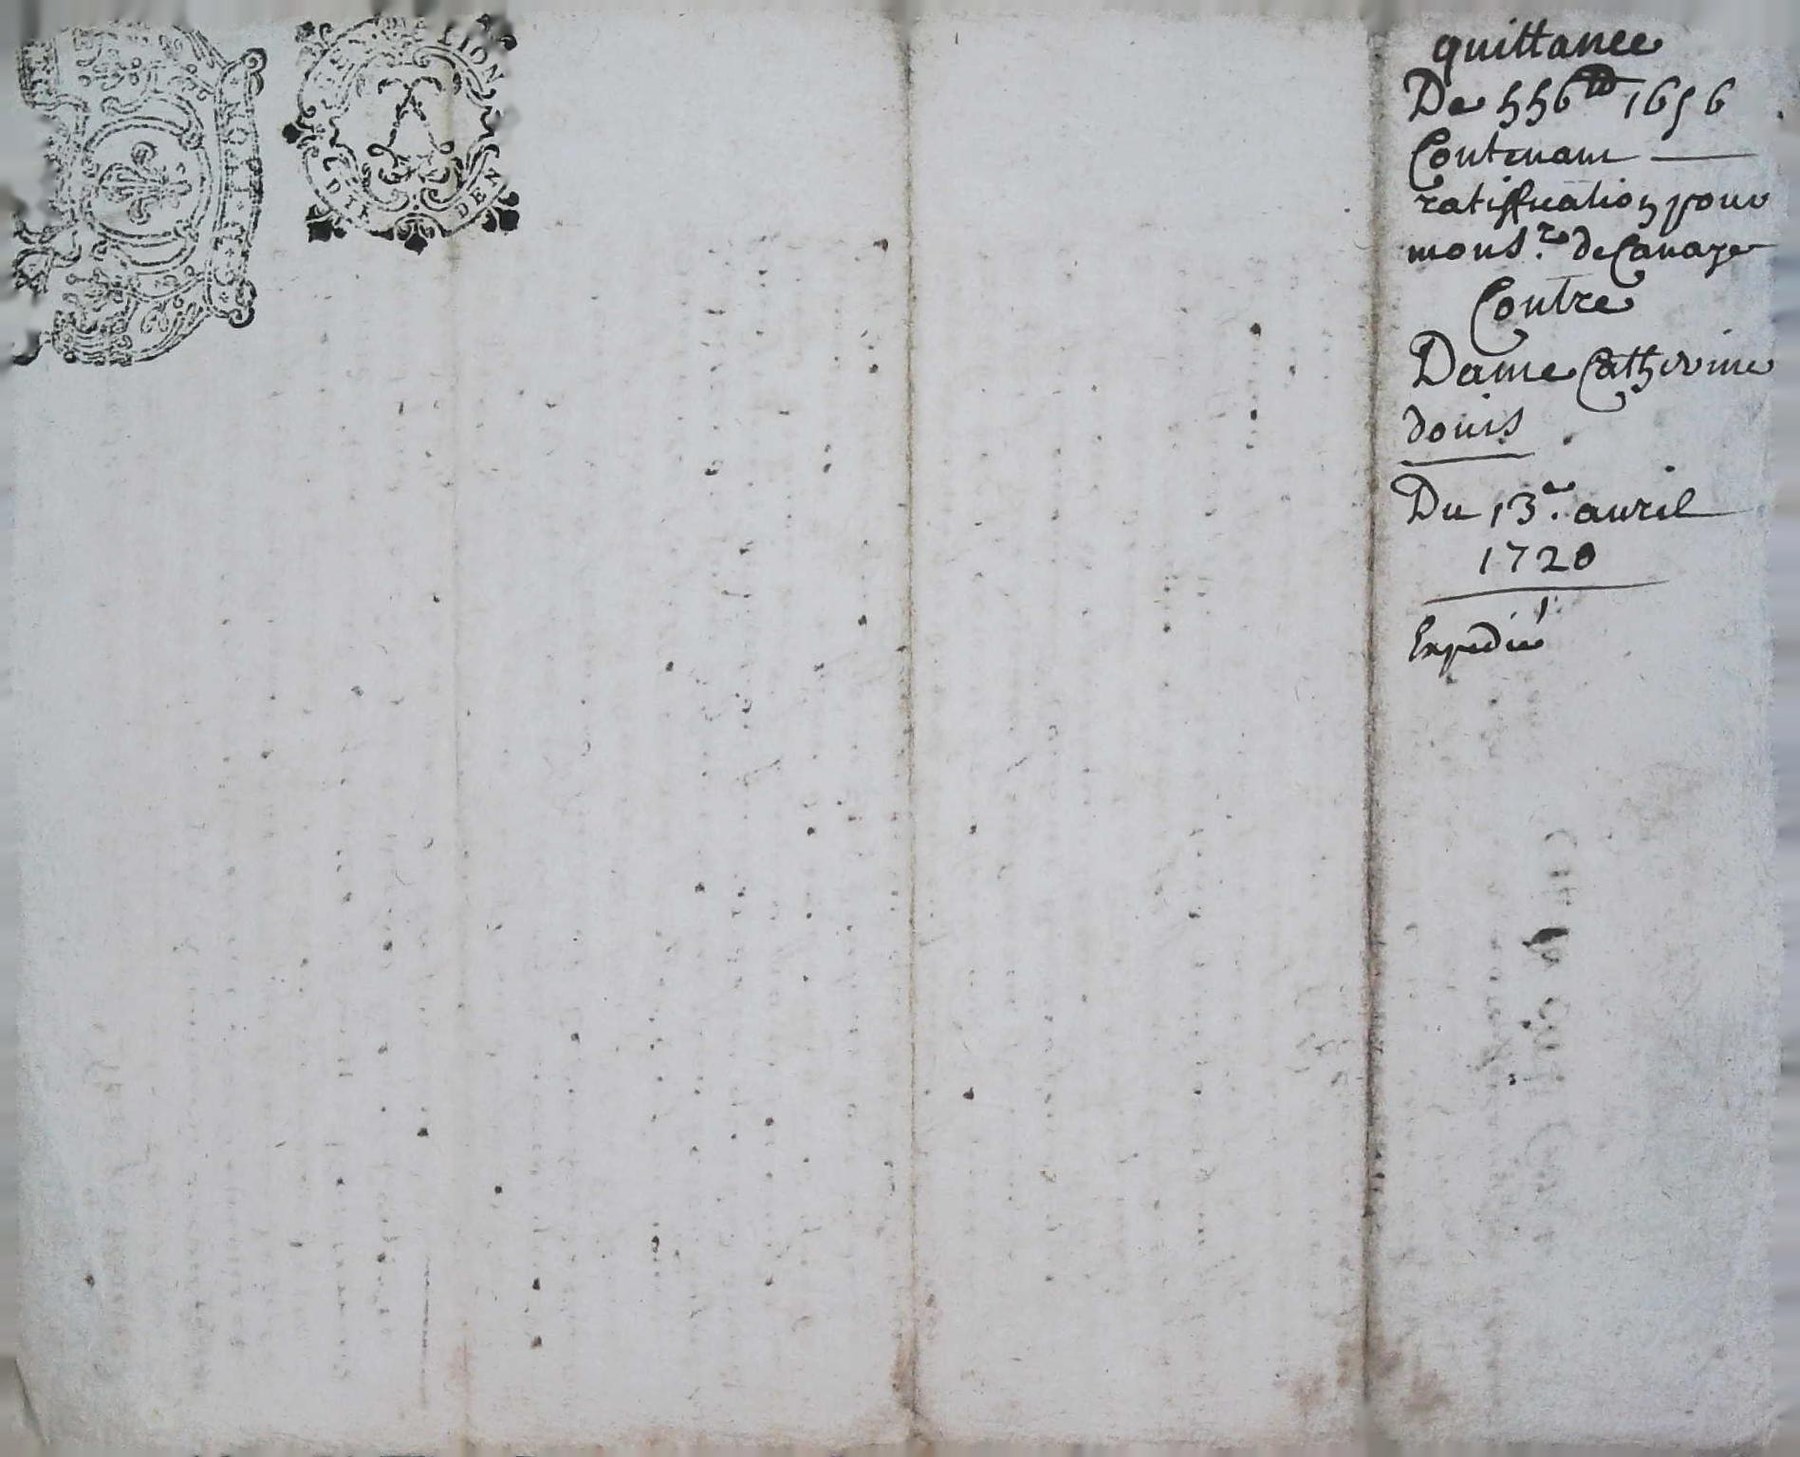 quittance
De 556ᵗᵗ 1656
Contenant
ratiffication pour
monsʳ. de Canaye
Contre
Dame Catherine
douis
Du 13ᵉ. avril
1720
Expedié